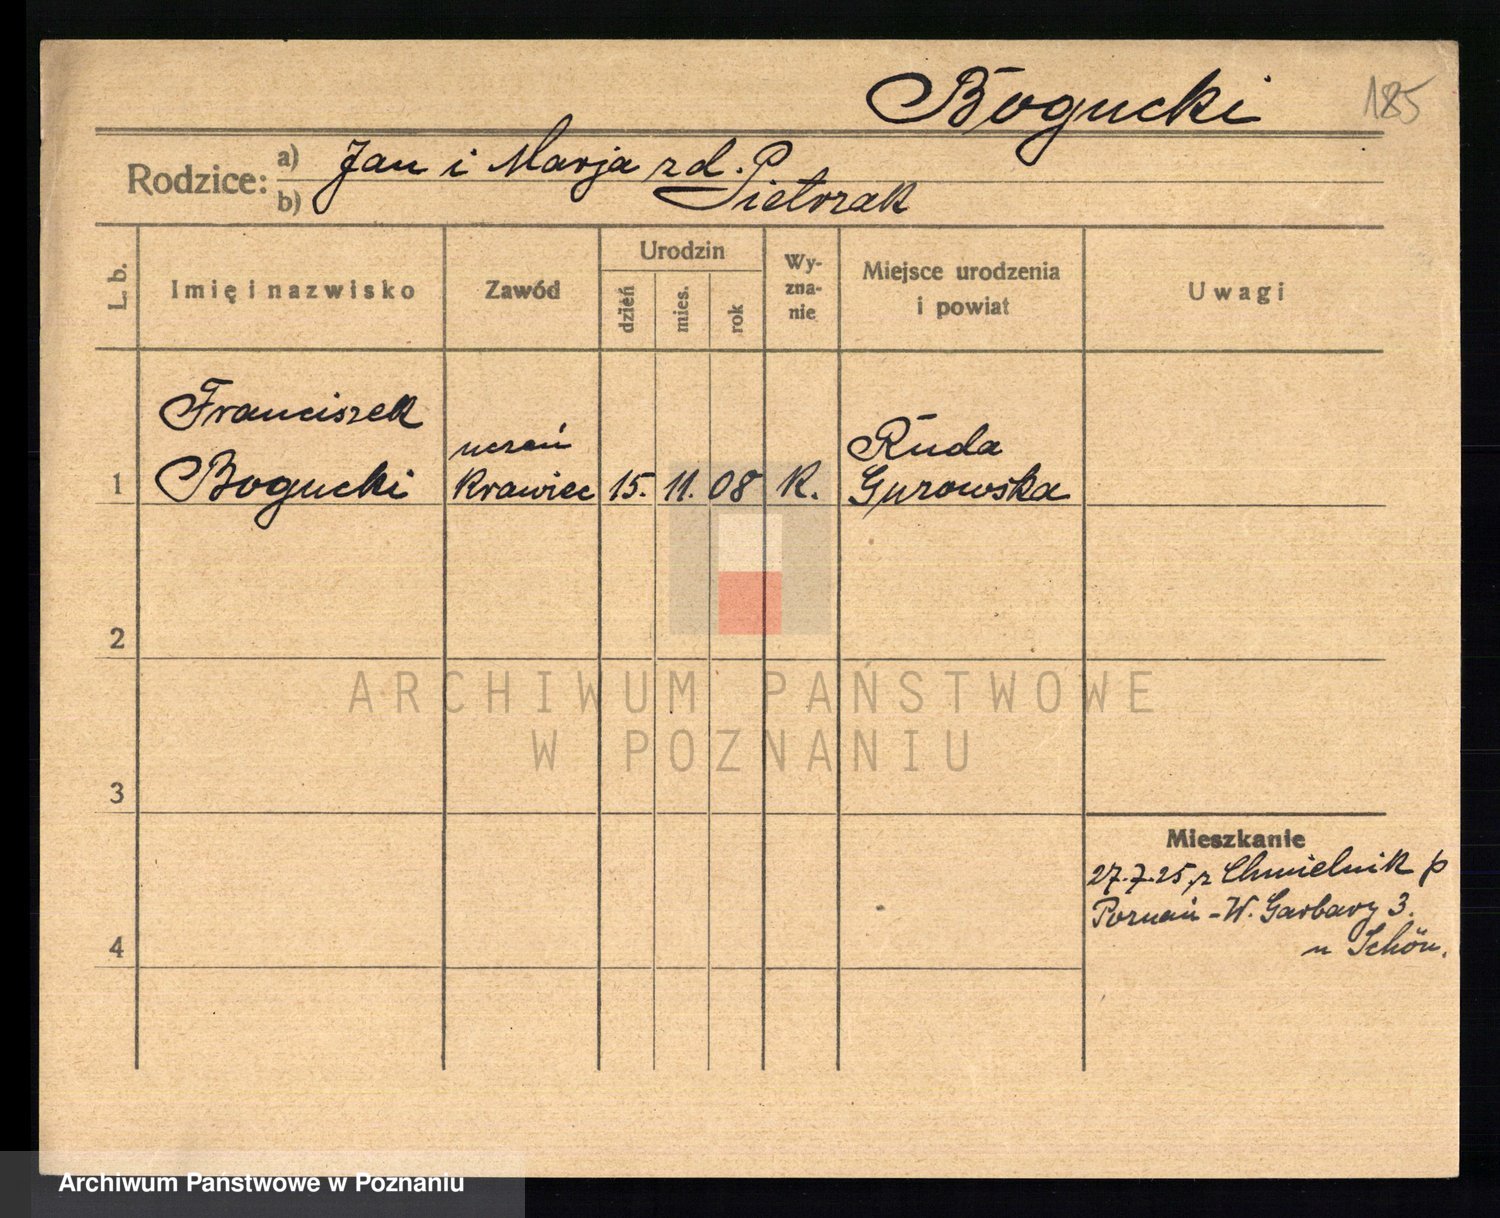 Bogucki
185
Rodzice:
a) Jan i Marja zd.
b) Pietrzak
L. b.
Imię i nazwisko
Zawód
Urodzin
dzień
mies.
rok
Wy-
zna-
nie
Miejsce urodzenia
i powiat
Uwagi
Franciszek
uczeń
Ruda
1 Bogucki krawiec 15. 11. 08 k. Gurowska
2
ARCHIWUM PAŃSTWOWE
W POZNANIU
3
Mieszkanie
27.7.25, z Chmielnik p
Poznań - W. Garbary 3.
u Schön.
4
Archiwum Państwowe w Poznaniu